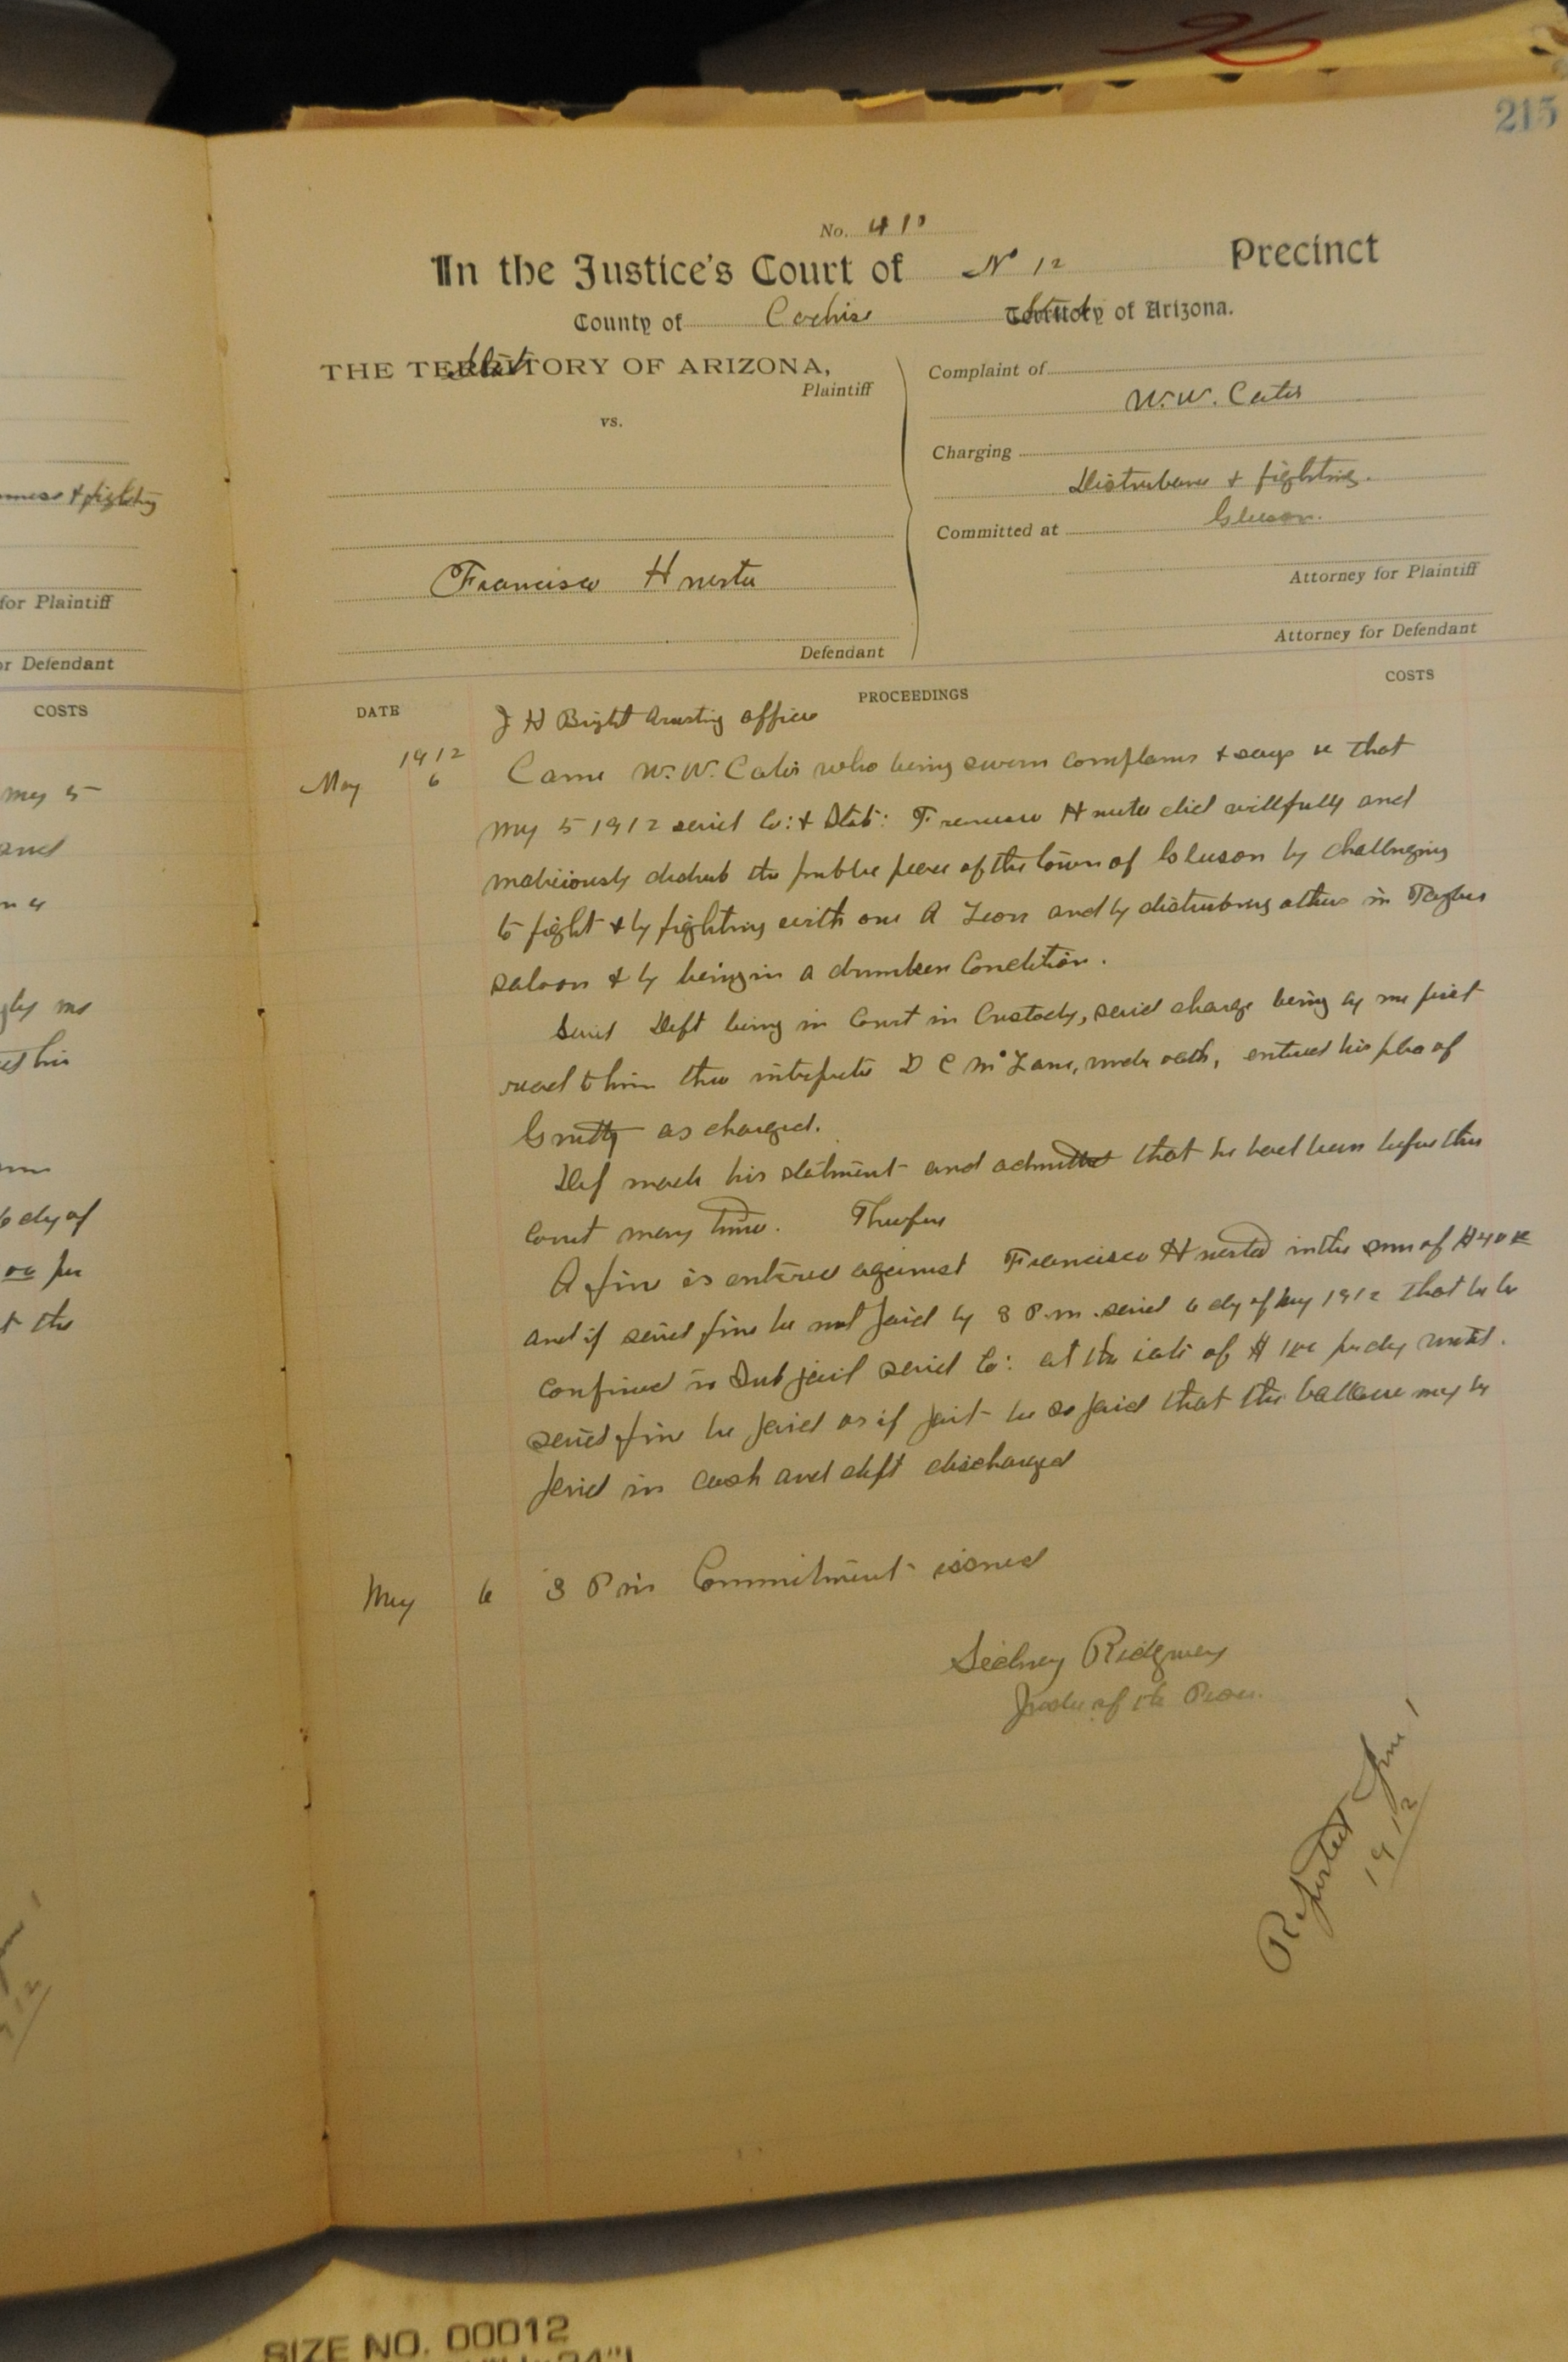 96
215
No. 410
In the Justice's Court of No 12 Precinct
County of Cochise State Territory of Arizona.
THE TERRITORY OF ARIZONA, State
Plaintiff
vs.
Francisco Huerta
Defendant
Complaint of
W. W. Cates
Charging
Disturbance & fighting.
Committed at Gleeson.
Attorney for Plaintiff
Attorney for Defendant
DATE PROCEEDINGS COSTS
J H Bright Arresting officer
1912
May 6 Came W. W. Cates who being sworn complains & says that
May 5 1912 said Co: & State: Francisco Huerta did willfully and
maliciously disturb the public peace of the town of Gleeson by challenging
to fight & by fighting with one A Leon and by disturbing others in Taylors
saloon & by being in a drunken Condition.
Said Deft being in Court in Custody, said charge being by me first
read to him thru interpreter D C McLane, under oath, entered his plea of
Guilty as charged.
Def made his statment and admitted that he had been before this
Court many times. Therefore
A fine is entered against Francisco Huerta in the sum of $40 00
and if said fine be not paid by 3 P.m. said 6 dy of May 1912 that he be
confined in Sub jail said Co: at the rate of $ 1 00 per dy until
said fine be paid or if part be so paid that the ballance may be
paid in cash and deft discharged
May 6 3 P m Commitment issued
Sidney Ridgway
Justice of the Peace.
Reported June 1
1912
ness & fighting
for Plaintiff
or Defendant
COSTS
may 5
and
his
6 dy of
00 per
the
SIZE NO. 00012